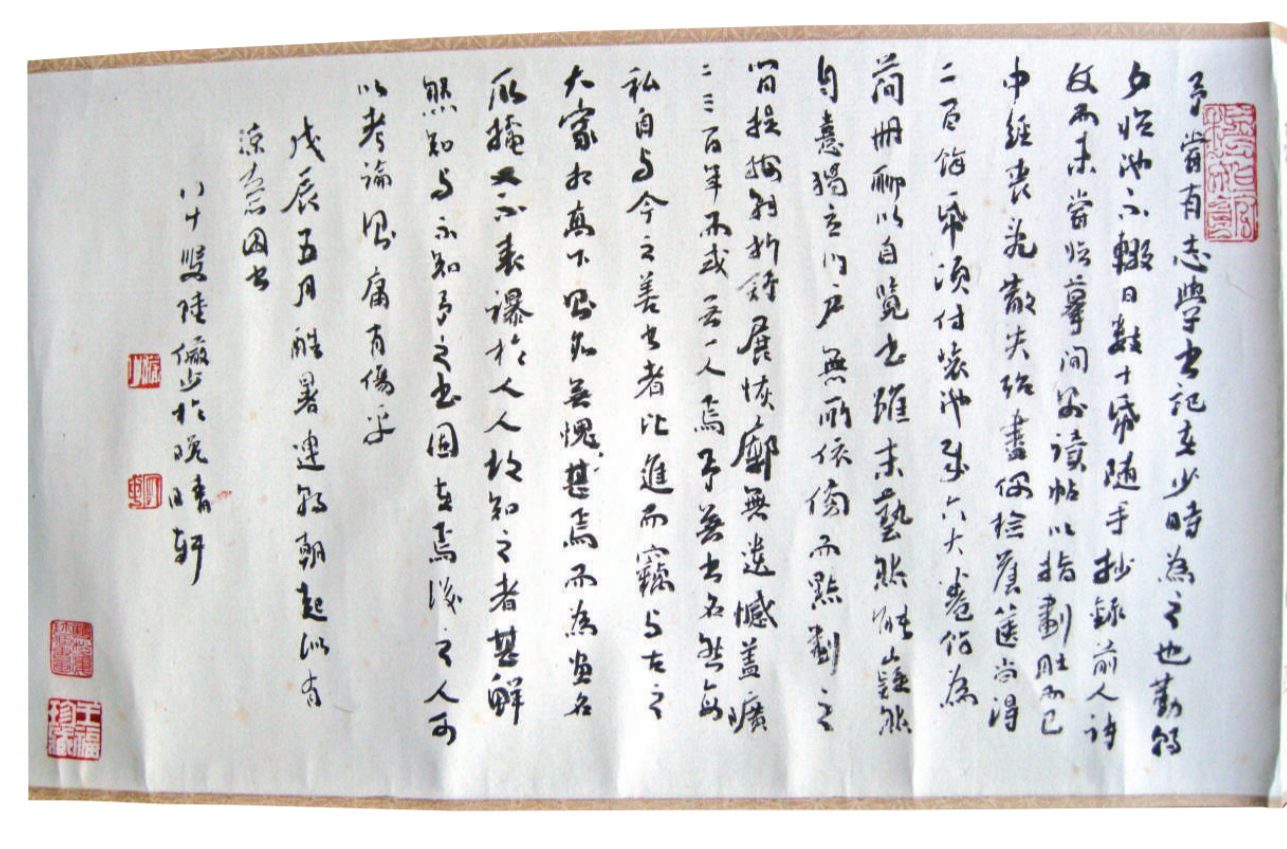 予嘗有志學書記在少時為之也勤朝
夕臨池不輟日數十帋随手抄錄前人詩
文而未嘗臨摹間則讀帖以指劃肚而已
中經喪亂散失殆盡偶檢舊篋尚得
二百餘帋須付裝池成六大卷仍為
簡冊聊以自覽也雖末藝然能嶷然
自意獨立門戶無所依傍而點劃之
間提按轉折舒展恢廓無遺憾蓋曠
二三百年而或無一人焉予無書名然每
私自與今之善書者比進而竊與古之
大家相高下則知無愧甚焉而為畫名
所掩又不表襮於人人故知之者甚鮮
然知與不知予之書固在焉後之人可
以考論則庸有傷乎
戊辰五月酷暑連朝朝起似有
涼意因書
八十叟陸儼少於晚晴軒
王福
珍藏